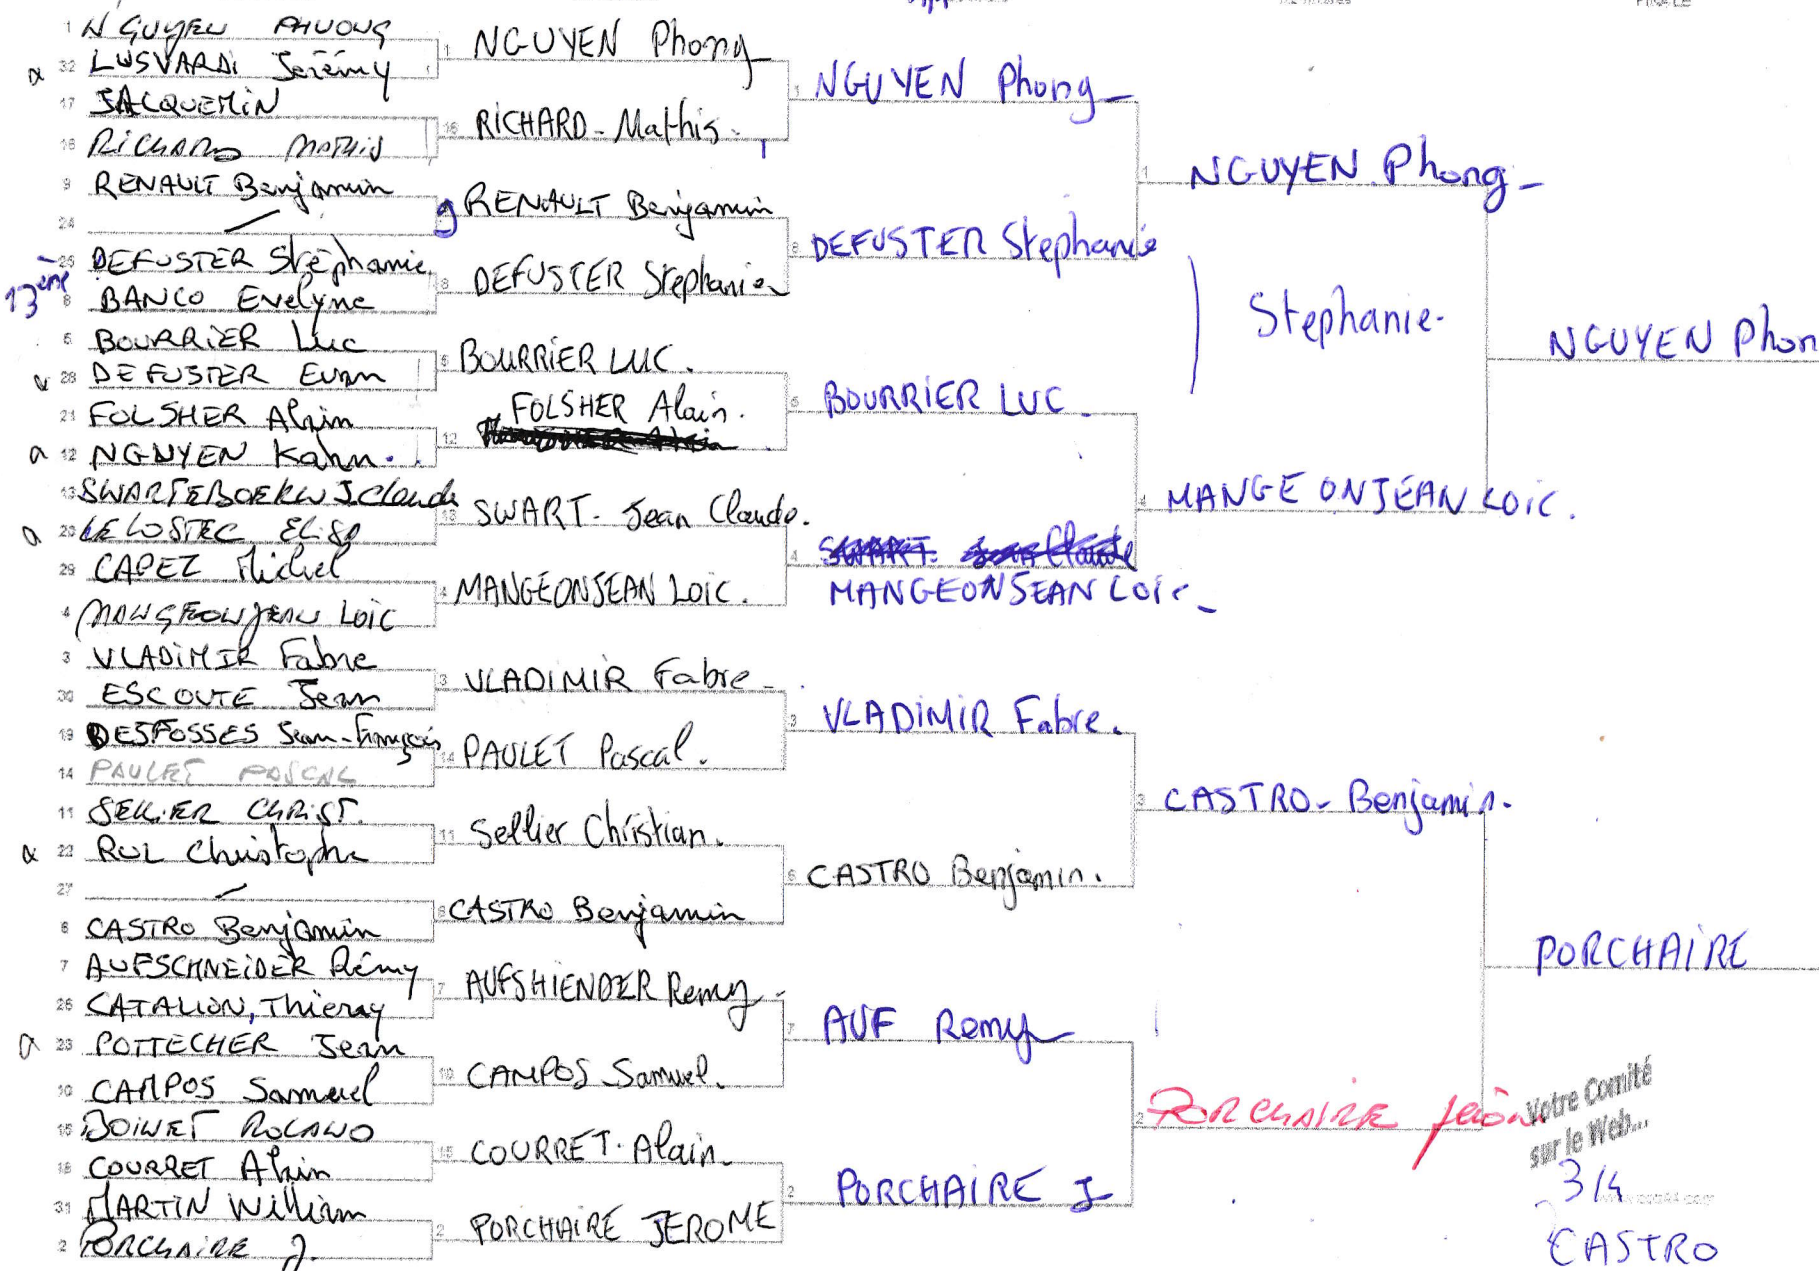 FINALE
1 NGUYEN PHUONG
32 LUSVARDI Jérémy
17 JACQUEMIN
16 RICHARD MATHIS
9 RENAULT Benjamin
24
25 DEFUSTER Stéphanie
13ème
8 BANCO Evelyne
5 BOURRIER Luc
28 DEFUSTER Evan
21 FOLSHER Alain
a 12 NGNYEN Kahn.
13 SWARTEBOEKW J.Claude
a 20 LE LOSTEC ELISA
29 CAPEZ Michel
4 MANGEONJEAN Loïc
3 VLADIMIR Fabre
30 ESCOUTE Jean
19 DESFOSSES Jean-François
14 PAULET PASCAL
11 SELLIER CHRIST.
a 22 RUL Christophe
27
6 CASTRO Benjamin
7 AUFSCHNEIDER Rémy
26 CATALION, Thierry
a 23 POTTECHER Jean
10 CAMPOS Samuel
15 BOINET ROLAND
18 COURRET Alain
31 MARTIN William
2 PORCHAIRE J.
1 NGUYEN Phong
16 RICHARD - Mathis.
9 RENAULT Benjamin
8 DEFUSTER Stephanie
5 BOURRIER LUC.
12 FOLSHER Alain.
13 SWART - Jean Claude.
4 MANGEONJEAN LOIC.
3 VLADIMIR Fabre
14 PAULET Pascal.
11 Sellier Christian.
6 CASTRO Benjamin
7 AUFSHIENDER Remy
10 CAMPOS Samuel.
15 COURRET. Alain.
2 PORCHAIRE JEROME
1 NGUYEN Phong
8 DEFUSTER Stephanie
5 BOURRIER LUC.
4 SWART. Jean Claude
MANGEONJEAN LOIC
3 VLADIMIR Fabre.
6 CASTRO Benjamin.
7 AUF Remy
2 PORCHAIRE J
1 NGUYEN Phong
Stephanie.
4 MANGEONJEAN LOIC.
3 CASTRO - Benjamin.
2 PORCHAIRE
NGUYEN Phon
PORCHAIRE
Votre Comité
sur le Web...
3/4
CASTRO